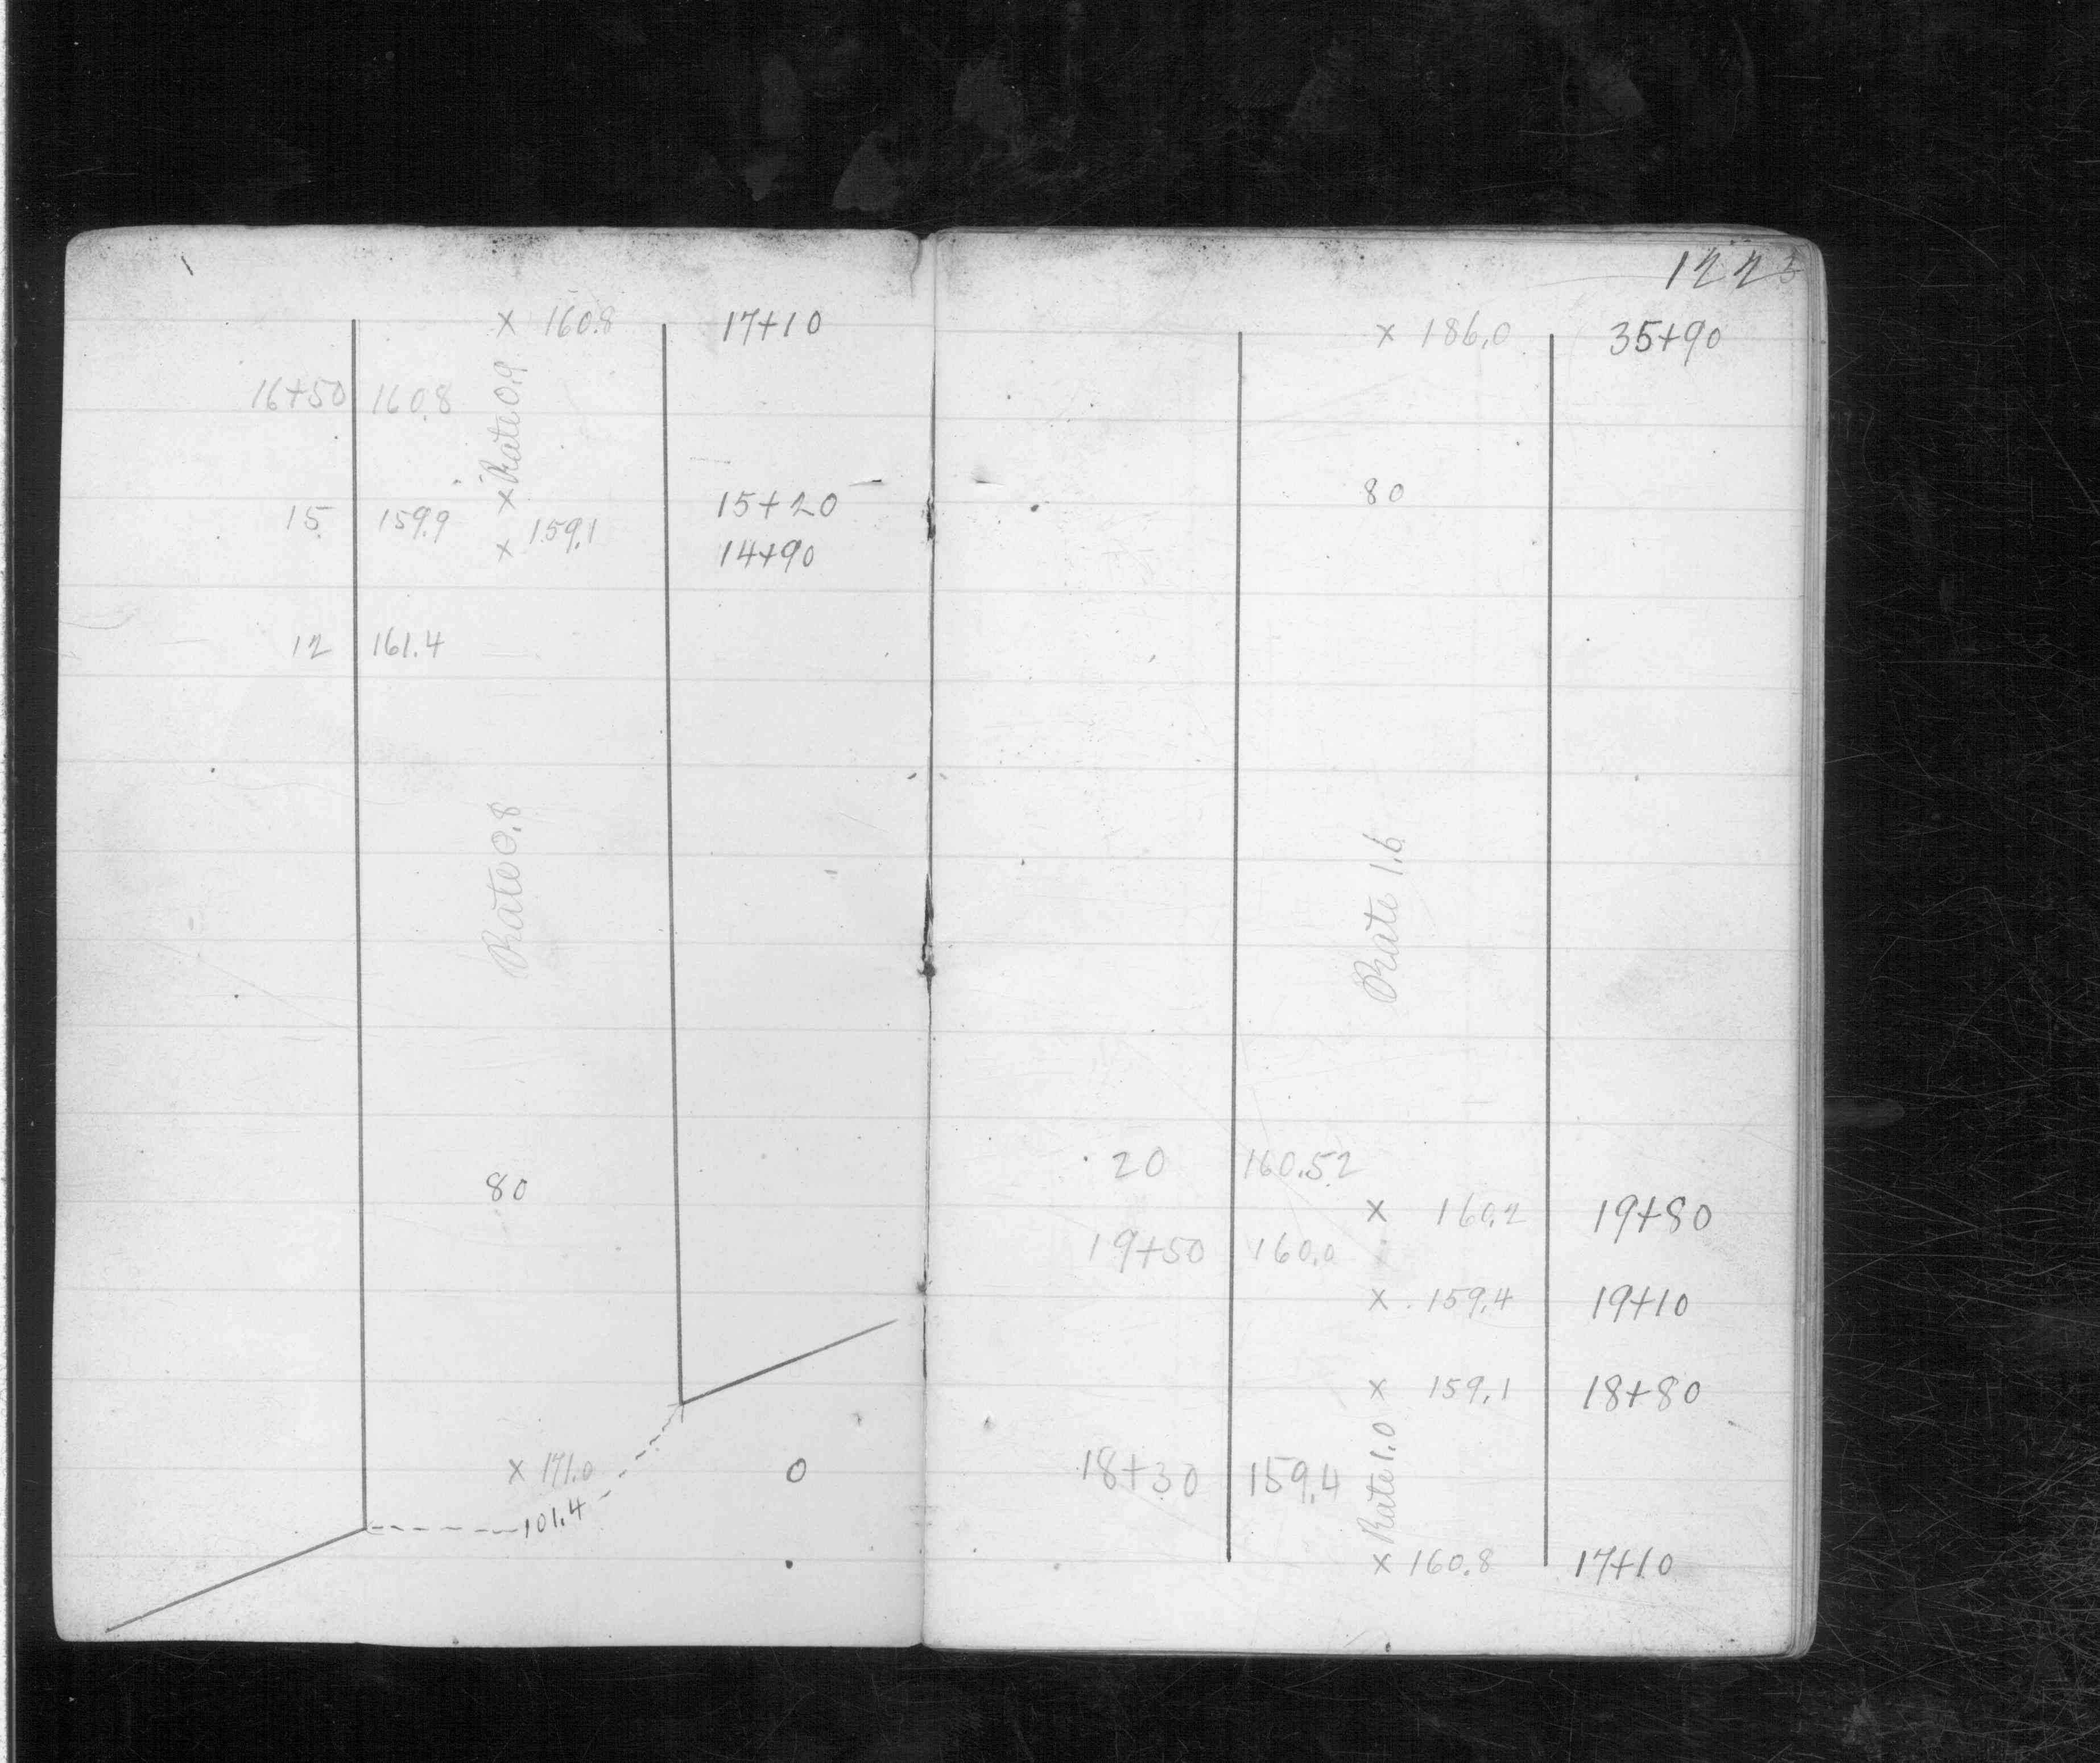 x 160.8 17+10
16+50 160.8
x Rate 0.9
15 159.9 x 159.1 15+20
14+90
12 161.4
Rate 0.8
80
x 171.0 0
101.4
x 186.0 35+90
80
Rate 1.6
20 160.52
x 160.2 19+80
19+50 160.0
x 159.4 19+10
x 159.1 18+80
Rate 1.0
18+30 159.4
x 160.8 17+10